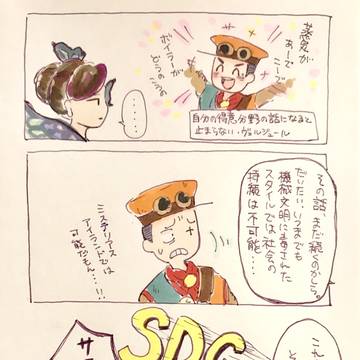 蒸気が
あーで
こーで
ボイラーが
どうのこうの
‥‥‥
自分の得意分野の話になると
止まらない・ヴェルジュール
その話、まだ続くのかしら。
だいたい、いつまでも
機械文明に毒された
スタイルでは社会の
持続は不可能‥‥
ミステリアス
アイランドでは
可能だもん‥‥!!
SDG
サ